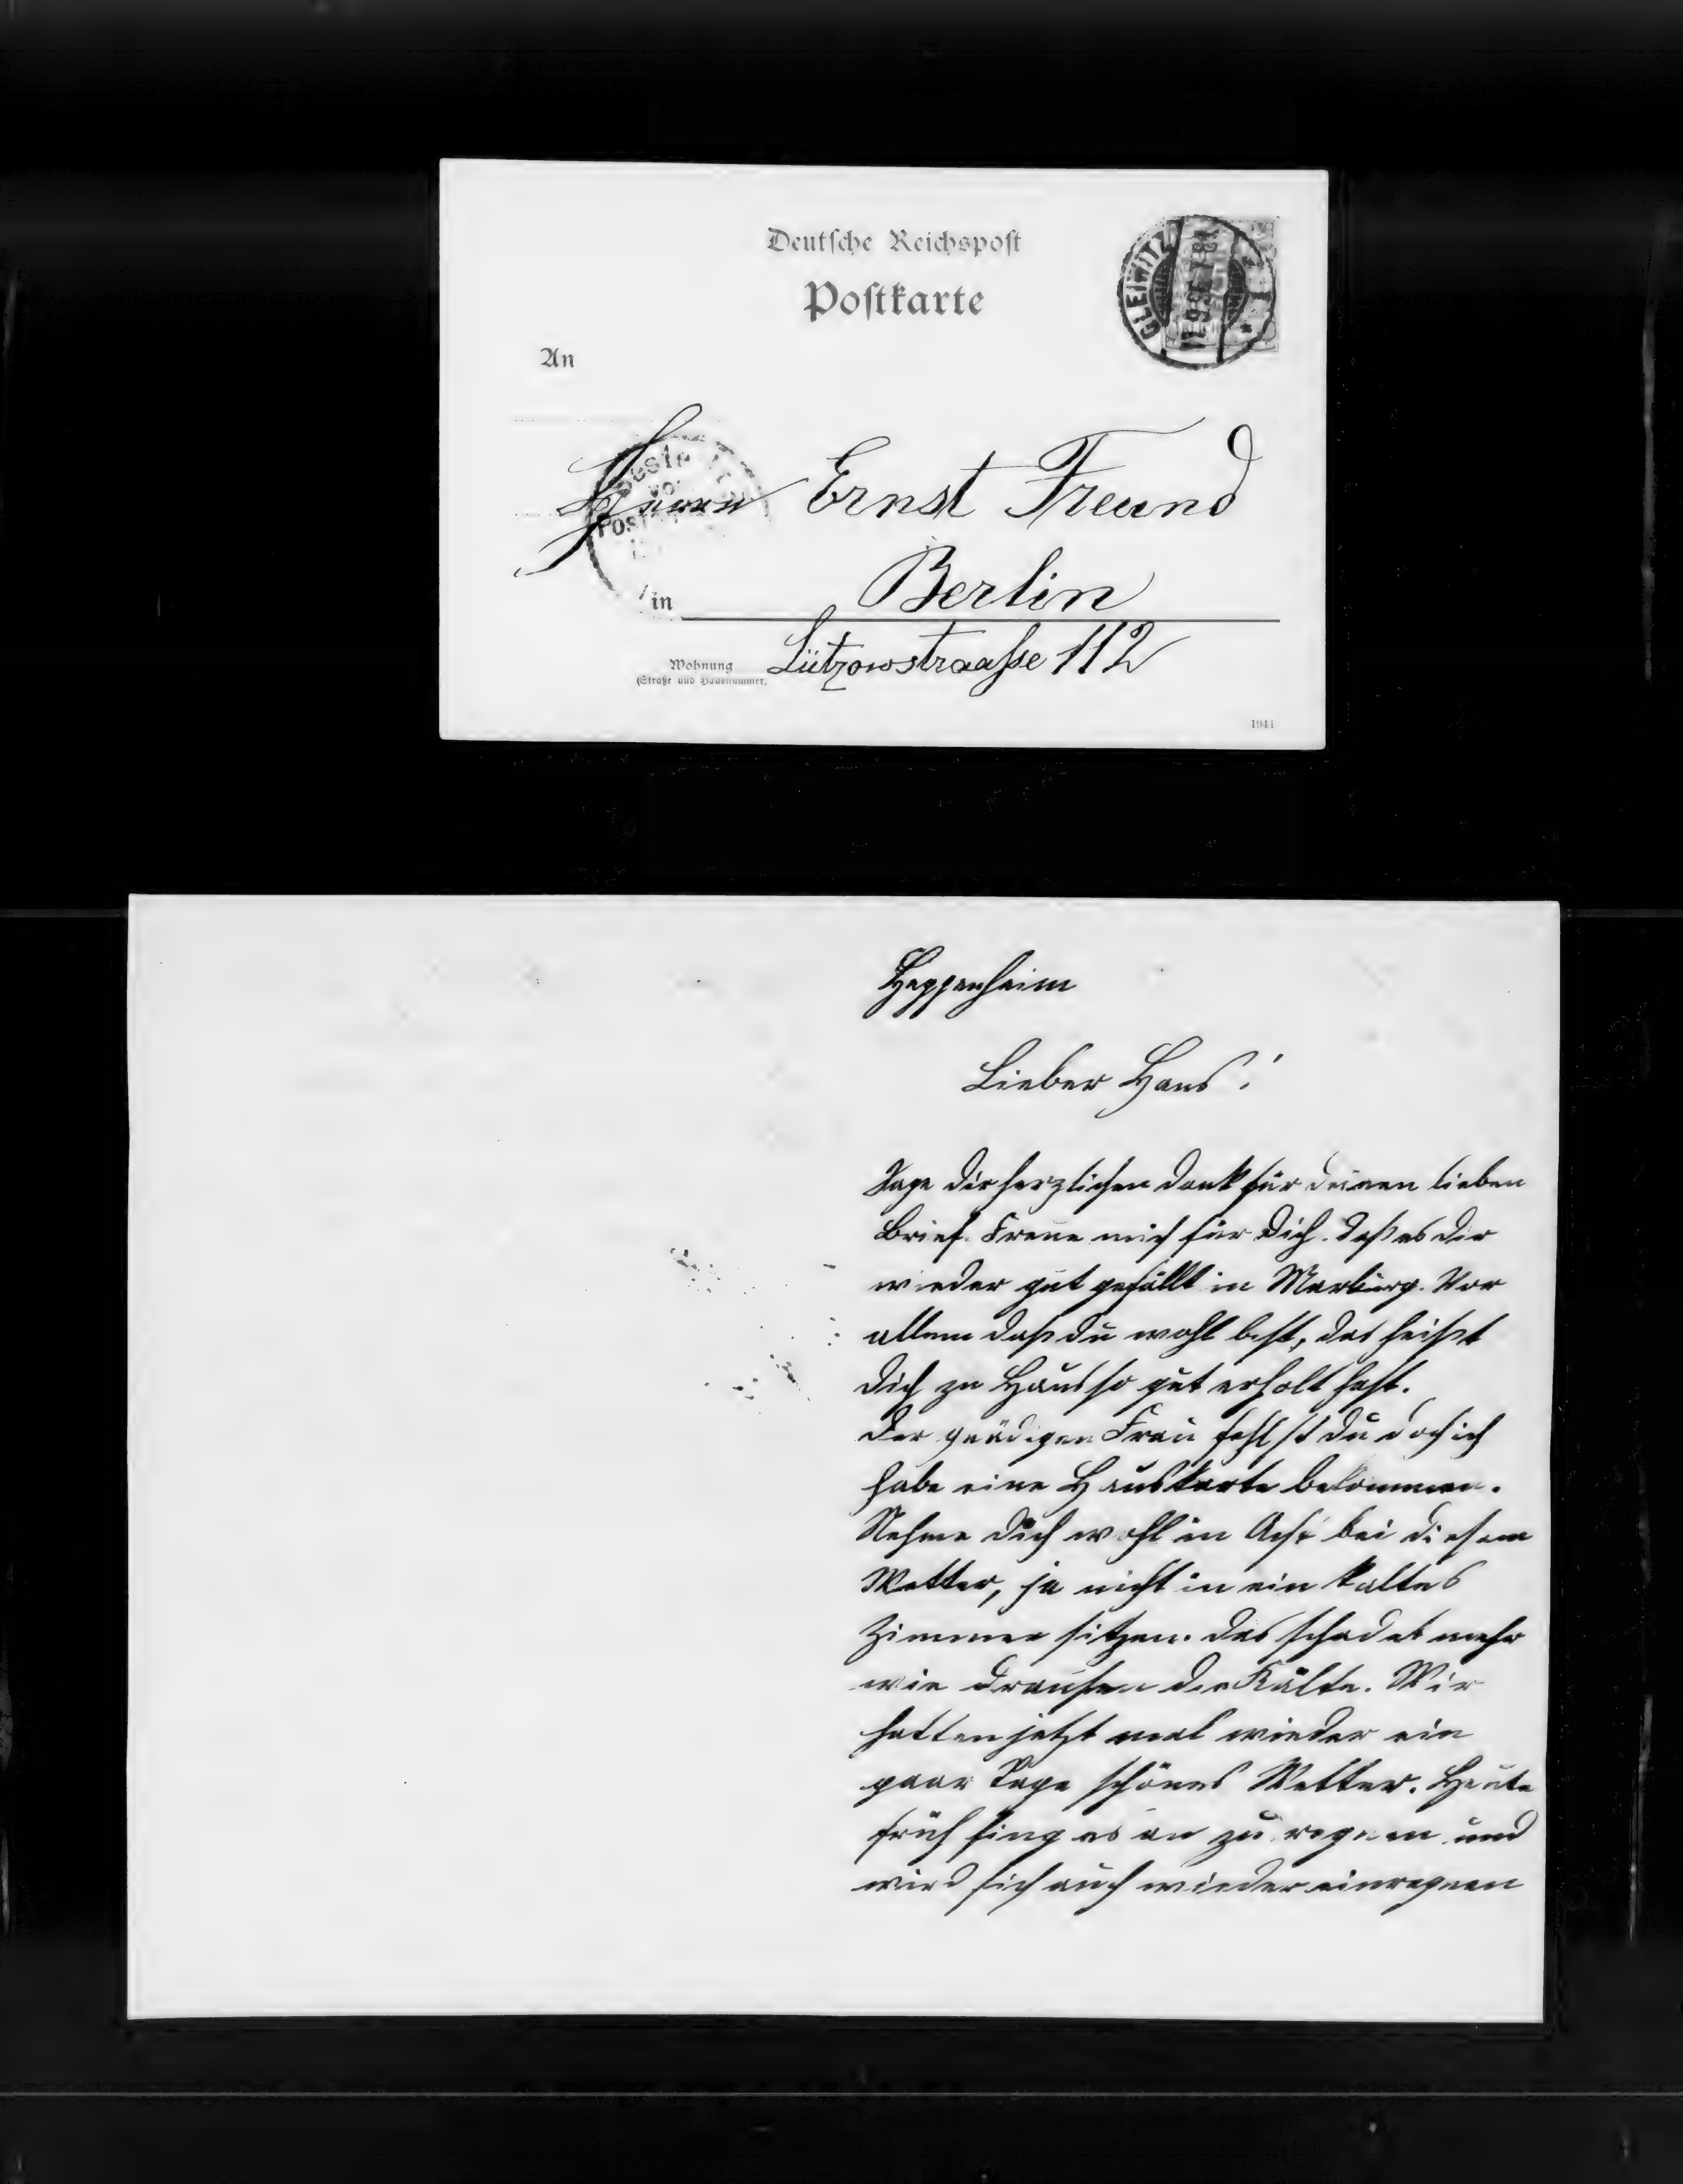 Deutsche Reichspost
Postkarte
GLEIWITZ
An
Herrn Ernst Freund
in Berlin
Wohnung Lützowstraasse 112
(Straße und Hausnummer)
Heppenheim
Lieber Hans!
Sage dir herzlichen Dank für deinen lieben
Brief. Freue mich für Dich. Daß es dir
wieder gut gefällt in Marburg. Vor
allem daß du wohl bist, das heißt
dich zu Haus so gut erholt hast.
Der gnädigen Frau fehlst du doch ich
habe eine Hauskarte bekommen.
Nehme dich wohl in Acht bei diesem
Wetter, ja nicht in ein kaltes
Zimmer sitzen. Das schadet mehr
wie draußen die Kälte. Wir
hatten jetzt mal wieder ein
paar Tage schönes Wetter. Heute
früh fing es an zu regnen und
wird sich auch wieder einregnen